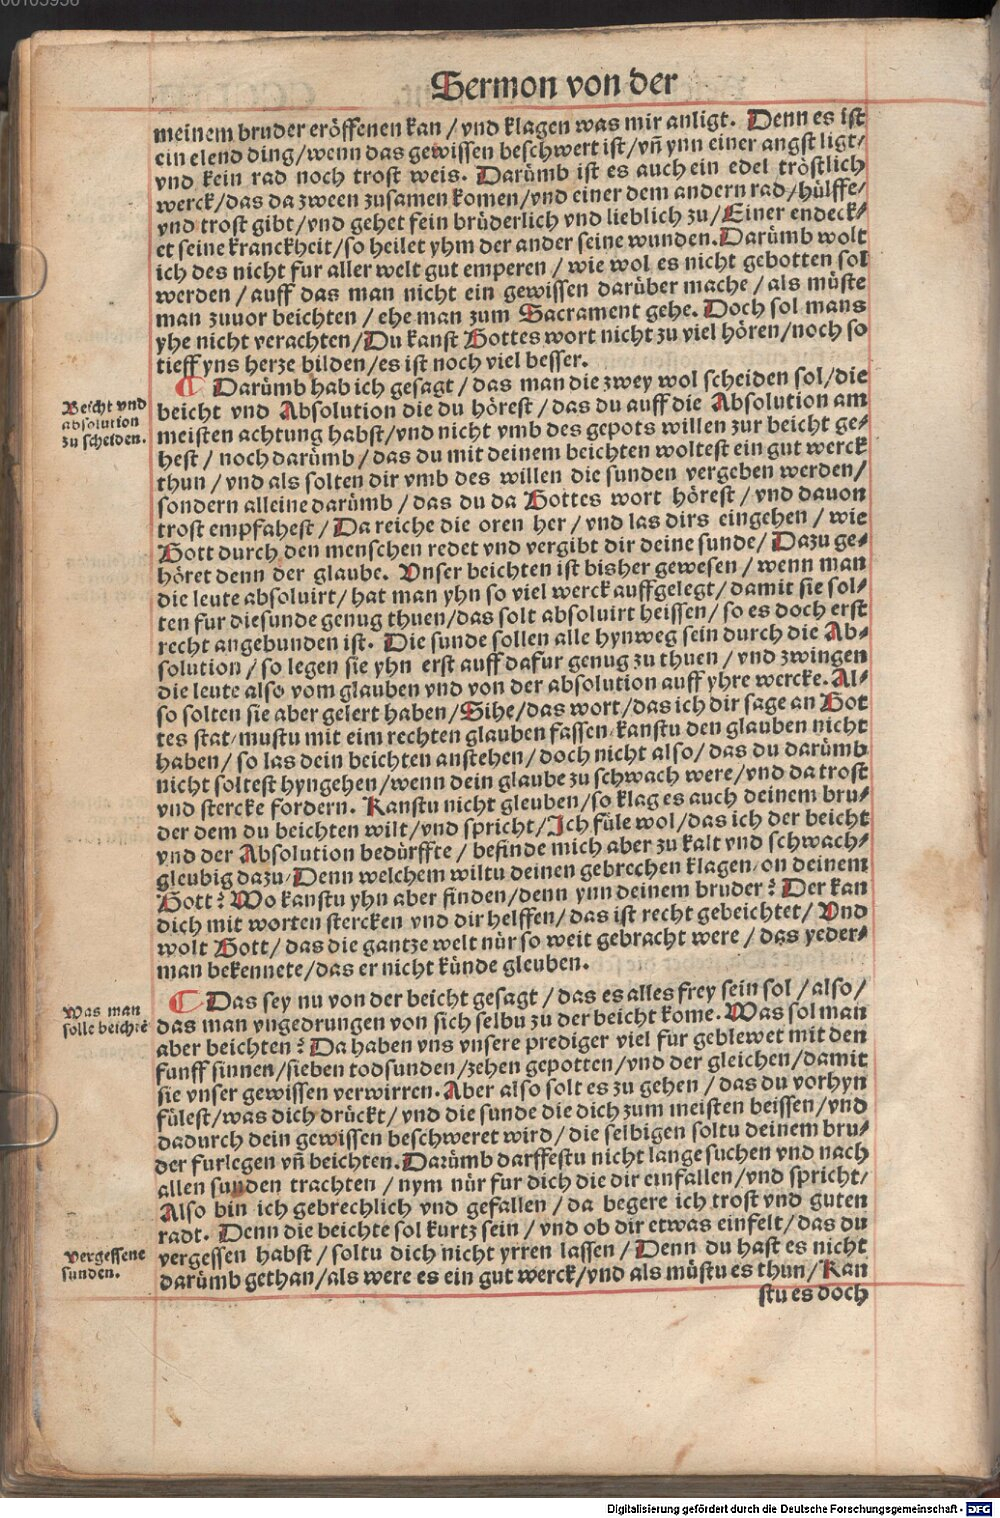 00105956
Sermon von der
meinem bruder eröffenen kan / vnd klagen was mir anligt. Denn es ist
ein elend ding/wenn das gewissen beschwert ist/vñ ynn einer angst ligt/
vnd kein rad noch trost weis. Darümb ist es auch ein edel tröstlich
werck/das da zween zusamen komen/vnd einer dem andern rad/hülffe/
vnd trost gibt/vnd gehet fein brüderlich vnd lieblich zu/Einer endeck-
et seine kranckheit/so heilet yhm der ander seine wunden.Darümb wolt
ich des nicht fur aller welt gut emperen / wie wol es nicht gebotten sol
werden / auff das man nicht ein gewissen darüber mache / als müste
man zuuor beichten / ehe man zum Sacrament gehe. Doch sol mans
yhe nicht verachten/Du kanst Gottes wort nicht zu viel hören/noch so
tieff yns herze bilden/es ist noch viel besser.
Beicht vnd
absolution
zu scheiden.
¶ Darümb hab ich gesagt / das man die zwey wol scheiden sol/die
beicht vnd Absolution die du hörest / das du auff die Absolution am
meisten achtung habst/vnd nicht vmb des gepots willen zur beicht ge-
hest / noch darümb / das du mit deinem beichten woltest ein gut werck
thun / vnd als solten dir vmb des willen die sunden vergeben werden/
sondern alleine darümb / das du da Gottes wort hörest / vnd dauon
trost empfahest / Da reiche die oren her / vnd las dirs eingehen / wie
Gott durch den menschen redet vnd vergibt dir deine sunde/ Dazu ge-
höret denn der glaube. Vnser beichten ist bisher gewesen / wenn man
die leute absoluirt/ hat man yhn so viel werck auffgelegt/damit sie sol-
ten fur die sunde genug thuen/das solt absoluirt heissen/ so es doch erst
recht angebunden ist. Die sunde sollen alle hynweg sein durch die Ab-
solution / so legen sie yhn erst auff dafur genug zu thuen / vnd zwingen
die leute also vom glauben vnd von der absolution auff yhre wercke. Al-
so solten sie aber gelert haben/Sihe/das wort/das ich dir sage an Got
tes stat/mustu mit eim rechten glauben fassen/kanstu den glauben nicht
haben/ so las dein beichten anstehen/ doch nicht also/ das du darümb
nicht soltest hyngehen/wenn dein glaube zu schwach were/vnd da trost
vnd stercke fordern. Kanstu nicht gleuben/so klag es auch deinem bru-
der dem du beichten wilt/vnd spricht/Ich füle wol/das ich der beicht
vnd der Absolution bedürffte / befinde mich aber zu kalt vnd schwach-
gleubig dazu/Denn welchem wiltu deinen gebrechen klagen/on deinem
Gott? Wo kanstu yhn aber finden/denn ynn deinem bruder? Der kan
dich mit worten stercken vnd dir helffen/das ist recht gebeichtet/ Vnd
wolt Gott/ das die gantze welt nür so weit gebracht were / das yeder-
man bekennete/das er nicht künde gleuben.
Was man
solle beichtē
¶ Das sey nu von der beicht gesagt / das es alles frey sein sol / also/
das man vngedrungen von sich selbu zu der beicht kome. Was sol man
aber beichten? Da haben vns vnsere prediger viel fur geblewet mit den
funff sinnen/sieben todsunden/zehen gepotten/vnd der gleichen/damit
sie vnser gewissen verwirren. Aber also solt es zu gehen / das du vorhyn
fülest/was dich drückt/ vnd die sunde die dich zum meisten beissen/vnd
dadurch dein gewissen beschweret wird/die selbigen soltu deinem bru-
der furlegen vñ beichten.Darümb darffestu nicht lange suchen vnd nach
allen sunden trachten / nym nür fur dich die dir einfallen/vnd spricht/
Also bin ich gebrechlich vnd gefallen / da begere ich trost vnd guten
radt. Denn die beichte sol kurtz sein / vnd ob dir etwas einfelt/das du
Vergessene
sunden.
vergessen habst / soltu dich nicht yrren lassen / Denn du hast es nicht
darümb gethan/als were es ein gut werck/vnd als müstu es thun/Kan
stu es doch
Digitalisierung gefördert durch die Deutsche Forschungsgemeinschaft - DFG